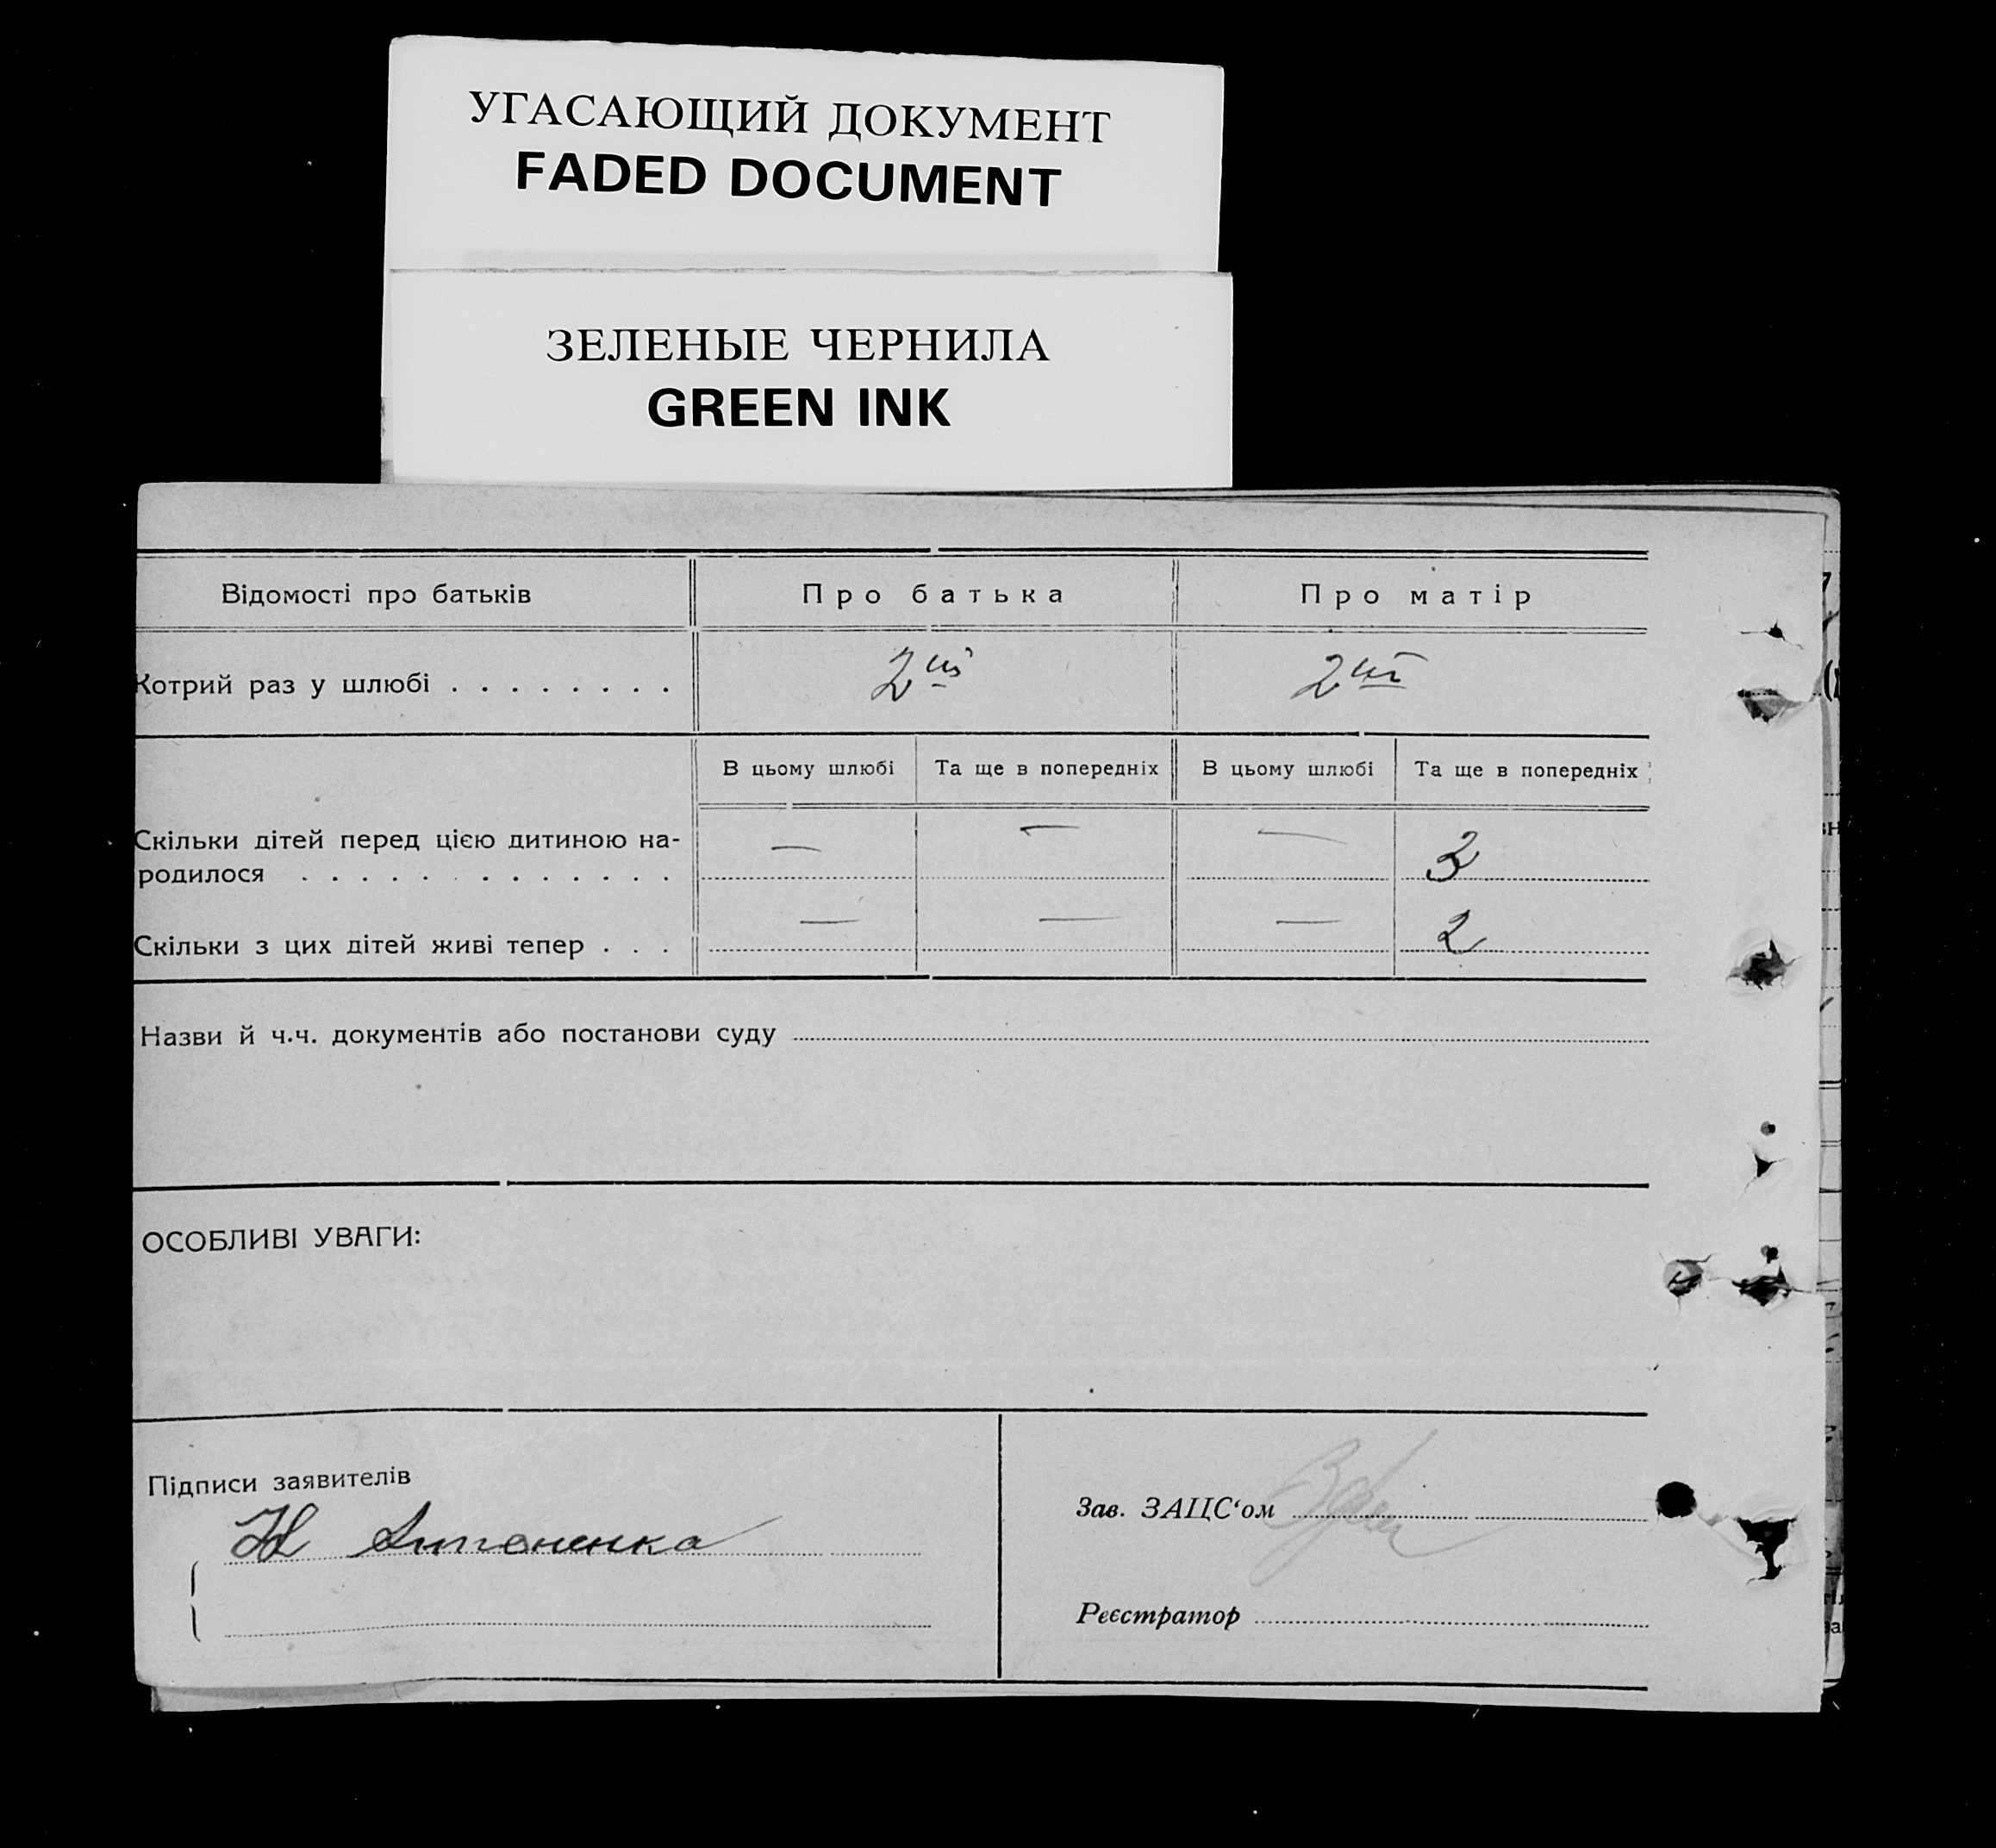 УГАСАЮЩИЙ ДОКУМЕНТ
FADED DOCUMENT
ЗЕЛЕНЫЕ ЧЕРНИЛА
GREEN INK
Відомості про батьків Про батька Про матір
Котрий раз у шлюбі . . . . . . . . 2ий 2ий
В цьому шлюбі Та ще в попередніх В цьому шлюбі Та ще в попередніх
Скільки дітей перед цією дитиною на-
родилося . . . . . . . . . . . . . — — — 3
Скільки з цих дітей живі тепер . . . — — — 2
Назви й ч.ч. документів або постанови суду
ОСОБЛИВІ УВАГИ:
Підписи заявителів
Антоненка
Зав. ЗАЦС‘ом
Реєстратор